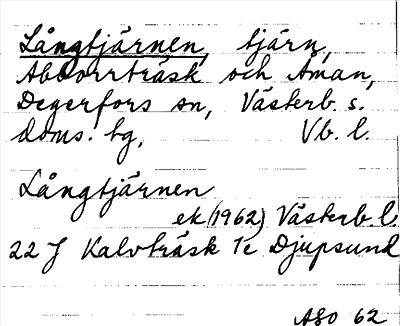 Långtjärnen, tjärn,
Abborrträsk och Åman,
Degerfors sn, Västerb. s.
doms. tg, Vb. l.
Långtjärnen
ek (1962) Västerb. l.
22 J Kalvträsk 1c Djupsund
ASO 62